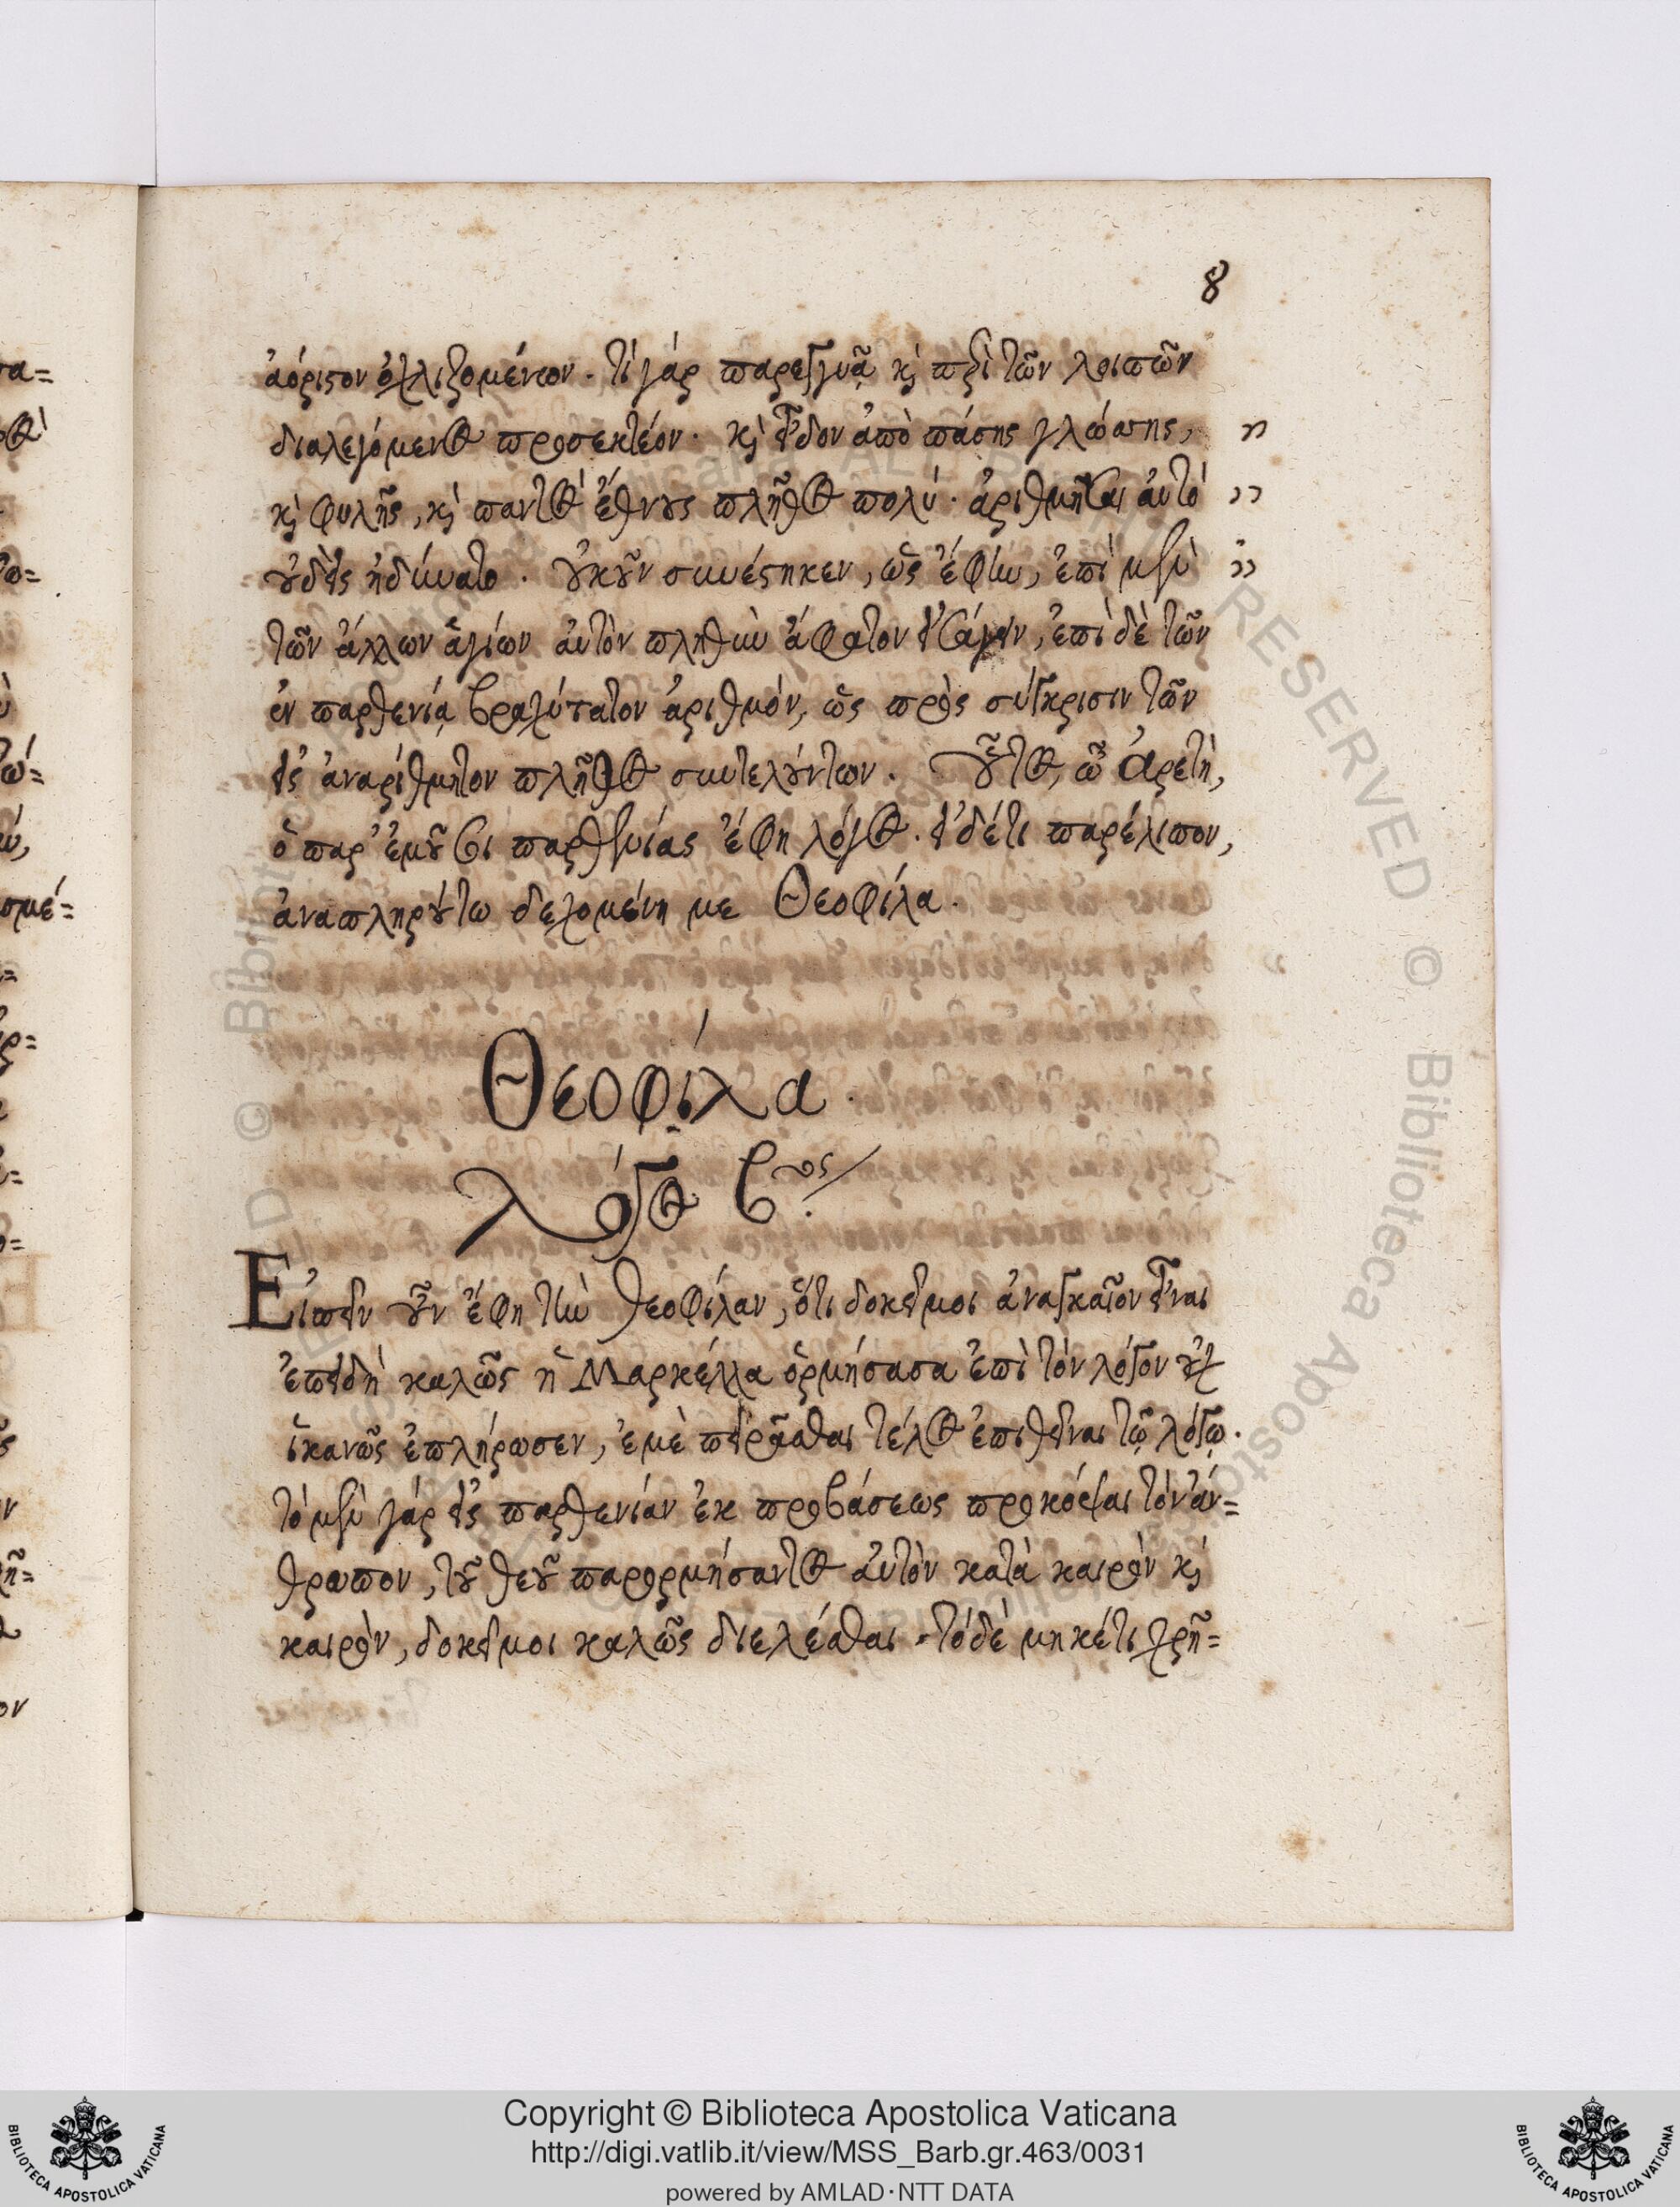 8
ἀόριστον ὀχλιζομένων. τί γάρ παρεγγυᾷ κὶ περὶ τῶν λοιπῶν
διαλεγόμενος προσεκτέον. κὶ εἶδον ἀπὸ πάσης γλώσσης,
κὶ φυλῆς, κὶ παντὸς ἔθνους πλῆθος πολύ. ἀριθμῆσαι ἀυτό
οὐδεὶς ἠδύνατο. οὐκοῦν συνέστηκεν, ὡς ἔφην, ἐπὶ μὲν
τῶν ἄλλων ἁγίων ἀυτὸν πληθὺν ἄφατον εἰσάγειν, ἐπὶ δὲ τῶν
ἐν παρθενίᾳ βραχύτατον ἀριθμόν, ὡς πρὸς σύγκρισιν τῶν
εἰς ἀναρίθμητον πλῆθος συντελούντων. οὗτος, ὦ Ἀρετὴ,
ὁ παρ' ἐμοῦ σοι παρθενίας ἔφη λόγος. εἰ δέ τι παρέλιπον,
ἀναπληρούτω δεχομένη με Θεοφίλα.
Θεοφίλα.
λόγος β.ος
Εἰπεῖν οὖν ἔφη τὴν θεοφίλαν, ὅτι δοκεῖ μοι ἀναγκαῖον εἶναι
ἐπειδὴ καλῶς ἡ Μαρκέλλα ὁρμήσασα ἐπὶ τὸν λόγον οὐχ
ἱκανῶς ἐπλήρωσεν, ἐμὲ πειρᾶσθαι τέλος ἐπιθεῖναι τῷ λόγῳ.
τὸ μὲν γάρ εἰς παρθενίαν ἐκ προβάσεως προκόψαι τὸν ἄν=
θρωπον, τοῦ θεοῦ παρορμήσαντος ἀυτὸν κατὰ καιρὸν κὶ
καιρὸν, δοκεῖ μοι καλῶς διελέσθαι. τὸ δὲ μηκέτι χρῆ=
Copyright © Biblioteca Apostolica Vaticana
http://digi.vatlib.it/view/MSS_Barb.gr.463/0031
powered by AMLAD·NTT DATA
BIBLIOTECA APOSTOLICA VATICANA
BIBLIOTECA APOSTOLICA VATICANA